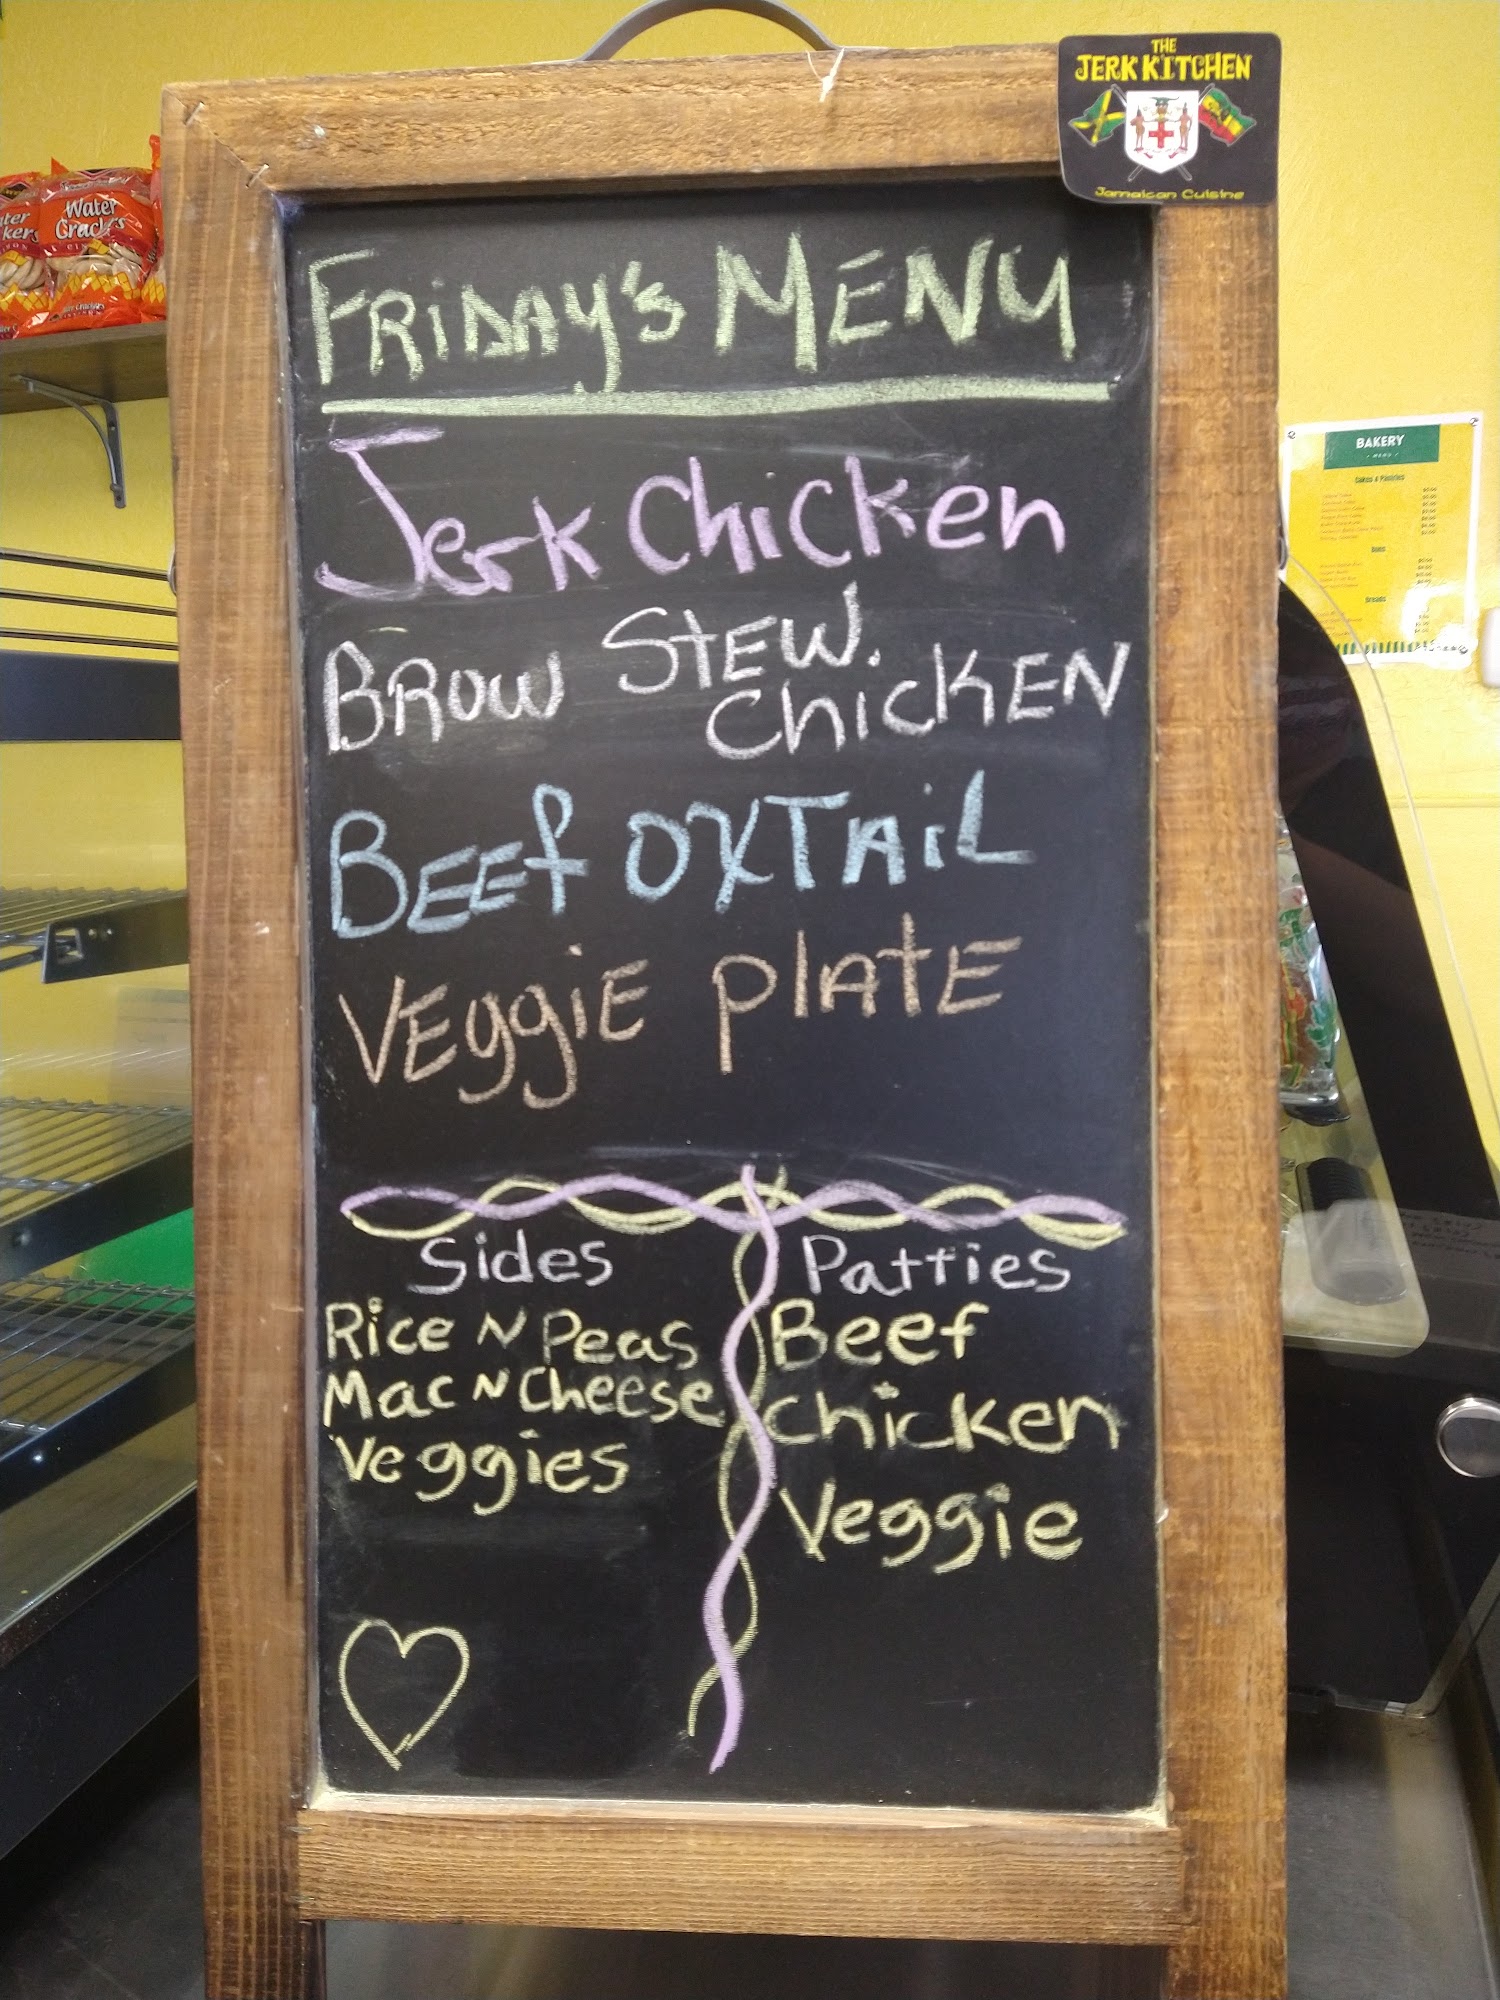 THE
JERK KITCHEN
Jamaican Cuisine
FRiDAy's MENU
Jerk Chicken
BROW STEW.
ChickEN
BEEf OXTAiL
VEggiE plAtE
Sides
Rice N Peas
Mac N Cheese
Veggies
Patties
Beef
Chicken
Veggie
Water
Crackers
BAKERY
MENU
Cakes & Pastries
Buns
Breads